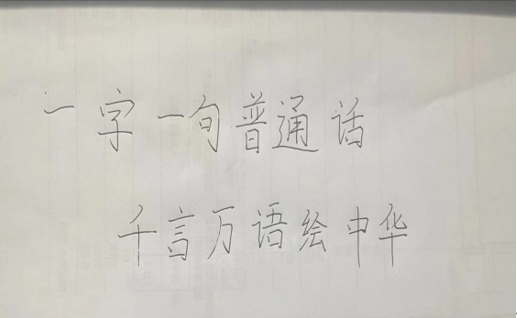 一字一句普通话
千言万语绘中华